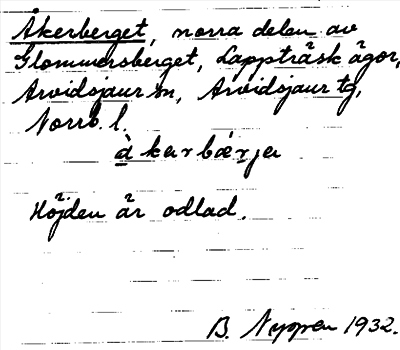 Åkerberget, norra delen av
Glommersberget, Lappträsk ägor,
Arvidsjaur sn, Arvidsjaur tg,
Norrb. l.
Höjden är odlad.
B. Nyppen 1932.